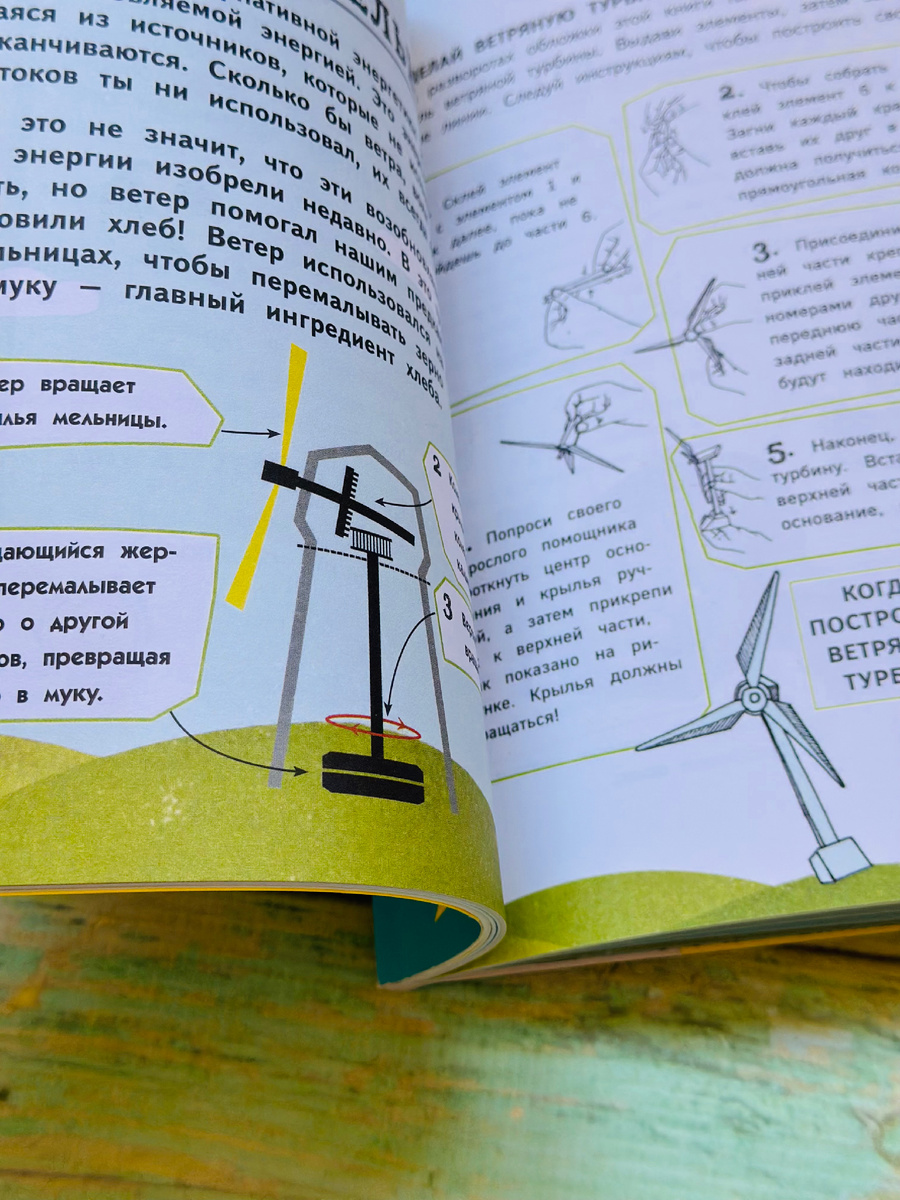 ЕЛЬ
нативной энерге
вляемой энергией. Это
аяся из источников, которые не
канчиваются. Сколько бы ветра,
токов ты ни использовал, их
это не значит, что эти возобно
энергии изобрели недавно. В
ть, но ветер помогал нашим пред
овили хлеб! Ветер использовался
льницах, чтобы перемалывать зерно
муку — главный ингредиент хлеба.
ер вращает
лья мельницы.
2
дающийся жер-
перемалывает
о о другой
ов, превращая
о в муку.
3
ДЕЛАЙ ВЕТРЯНУЮ ТУРБ
обложки этой книги
ветряной турбины. Выдави элементы, затем
линии. Следуй инструкциям, чтобы построить сво
Склей элемент
с элементом 1 и
далее, пока не
йдешь до части 6.
2. Чтобы собрать
клей элемент 6 к
Загни каждый кра
вставь их друг в
должна получитьс
прямоугольная ко
3. Присоедини
ней части кре
приклей элеме
номерами дру
переднюю ча
задней части
будут наход
Попроси своего
рослого помощника
откнуть центр осно-
ния и крылья руч-
й, а затем прикрепи
к верхней части,
к показано на ри-
нке. Крылья должны
ращаться!
5. Наконец,
турбину. Вст
верхней част
основание,
КОГД
ПОСТРО
ВЕТРЯ
ТУРБ